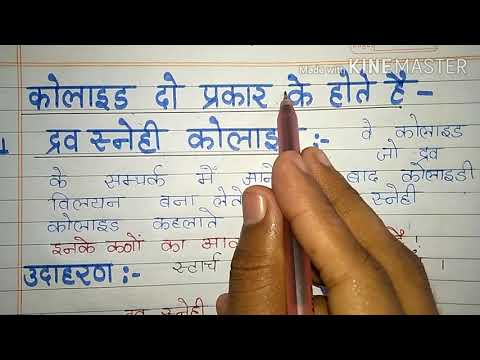 Made with KINEMASTER
कोलाइड दो प्रकार के होते हैं -
द्रव स्नेही कोलाइड :- वे कोलाइड
जो द्रव
के सम्पर्क में आने बाद कोलाइडी
विलयन बना लेते स्नेही
कोलाइड कहलाते
इनके कणों का
उदाहरण :- स्टार्च
द्रव स्नेही